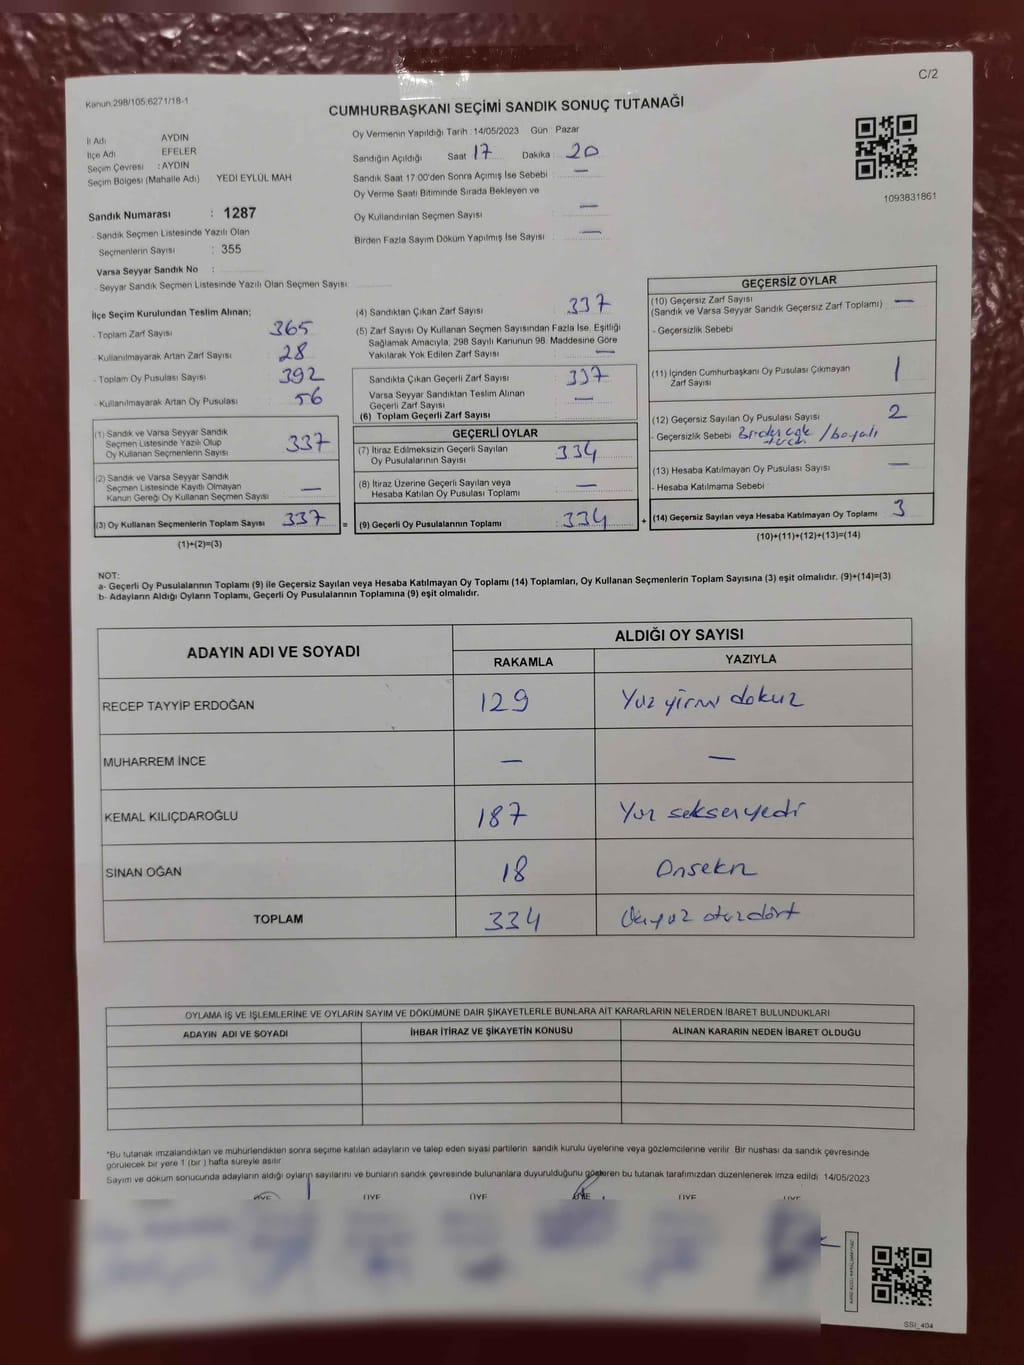 C/2
Kanun:298/105;6271/18-1
CUMHURBAŞKANI SEÇİMİ SANDIK SONUÇ TUTANAĞI
İl Adı AYDIN
İlçe Adı EFELER
Seçim Çevresi : AYDIN
Seçim Bölgesi (Mahalle Adı) YEDİ EYLÜL MAH
Sandık Numarası : 1287
- Sandık Seçmen Listesinde Yazılı Olan
Seçmenlerin Sayısı : 355
Varsa Seyyar Sandık No :
- Seyyar Sandık Seçmen Listesinde Yazılı Olan Seçmen Sayısı:
Oy Vermenin Yapıldığı Tarih : 14/05/2023 Gün Pazar
Sandığın Açıldığı Saat 17 Dakika : 20
Sandık Saat 17:00'den Sonra Açımış İse Sebebi : —
Oy Verme Saati Bitiminde Sırada Bekleyen ve
Oy Kullandırılan Seçmen Sayısı : —
Birden Fazla Sayım Döküm Yapılmış İse Sayısı : —
1093831861
İlçe Seçim Kurulundan Teslim Alınan;
- Toplam Zarf Sayısı : 365
- Kullanılmayarak Artan Zarf Sayısı : 28
- Toplam Oy Pusulası Sayısı : 392
- Kullanılmayarak Artan Oy Pusulası : 56
(1) Sandık ve Varsa Seyyar Sandık
Seçmen Listesinde Yazılı Olup
Oy Kullanan Seçmenlerin Sayısı : 337
(2) Sandık ve Varsa Seyyar Sandık
Seçmen Listesinde Kayıtlı Olmayan
Kanun Gereği Oy Kullanan Seçmen Sayısı : —
(3) Oy Kullanan Seçmenlerin Toplam Sayısı : 337 =
(1)+(2)=(3)
(4) Sandıktan Çıkan Zarf Sayısı : 337
(5) Zarf Sayısı Oy Kullanan Seçmen Sayısından Fazla İse, Eşitliği
Sağlamak Amacıyla; 298 Sayılı Kanunun 98. Maddesine Göre
Yakılarak Yok Edilen Zarf Sayısı : —
Sandıkta Çıkan Geçerli Zarf Sayısı : 337
Varsa Seyyar Sandıktan Teslim Alınan
Geçerli Zarf Sayısı : —
(6) Toplam Geçerli Zarf Sayısı :
GEÇERLİ OYLAR
(7) İtiraz Edilmeksizin Geçerli Sayılan
Oy Pusulalarının Sayısı : 334
(8) İtiraz Üzerine Geçerli Sayılan veya
Hesaba Katılan Oy Pusulası Toplamı : —
(9) Geçerli Oy Pusulalarının Toplamı : 334 +
GEÇERSİZ OYLAR
(10) Geçersiz Zarf Sayısı : —
(Sandık ve Varsa Seyyar Sandık Geçersiz Zarf Toplamı)
- Geçersizlik Sebebi
(11) İçinden Cumhurbaşkanı Oy Pusulası Çıkmayan
Zarf Sayısı : 1
(12) Geçersiz Sayılan Oy Pusulası Sayısı : 2
- Geçersizlik Sebebi /boyalı
(13) Hesaba Katılmayan Oy Pusulası Sayısı : —
- Hesaba Katılmama Sebebi
(14) Geçersiz Sayılan veya Hesaba Katılmayan Oy Toplamı : 3
(10)+(11)+(12)+(13)=(14)
NOT:
a- Geçerli Oy Pusulalarının Toplamı (9) ile Geçersiz Sayılan veya Hesaba Katılmayan Oy Toplamı (14) Toplamları, Oy Kullanan Seçmenlerin Toplam Sayısına (3) eşit olmalıdır. (9)+(14)=(3)
b- Adayların Aldığı Oyların Toplamı, Geçerli Oy Pusulalarının Toplamına (9) eşit olmalıdır.
ADAYIN ADI VE SOYADI
ALDIĞI OY SAYISI
RAKAMLA YAZIYLA
RECEP TAYYİP ERDOĞAN 129 Yüz yirmi dokuz
MUHARREM İNCE — —
KEMAL KILIÇDAROĞLU 187 Yüz seksenyedi
SİNAN OĞAN 18 Onsekiz
TOPLAM 334 Üçyüz otuzdört
OYLAMA İŞ VE İŞLEMLERİNE VE OYLARIN SAYIM VE DÖKÜMÜNE DAİR ŞİKAYETLERLE BUNLARA AİT KARARLARIN NELERDEN İBARET BULUNDUKLARI
ADAYIN ADI VE SOYADI İHBAR İTİRAZ VE ŞİKAYETİN KONUSU ALINAN KARARIN NEDEN İBARET OLDUĞU
*Bu tutanak imzalandıktan ve mühürlendikten sonra seçime katılan adayların ve talep eden siyasi partilerin sandık kurulu üyelerine veya gözlemcilerine verilir. Bir nushası da sandık çevresinde
görülecek bir yere 1 (bir ) hafta süreyle asılır
Sayım ve döküm sonucunda adayların aldığı oyların sayılarını ve bunların sandık çevresinde bulunanlara duyurulduğunu gösteren bu tutanak tarafımızdan düzenlenerek imza edildi. 14/05/2023
ÜYE ÜYE ÜYE ÜYE ÜYE ÜYE
SSI_404